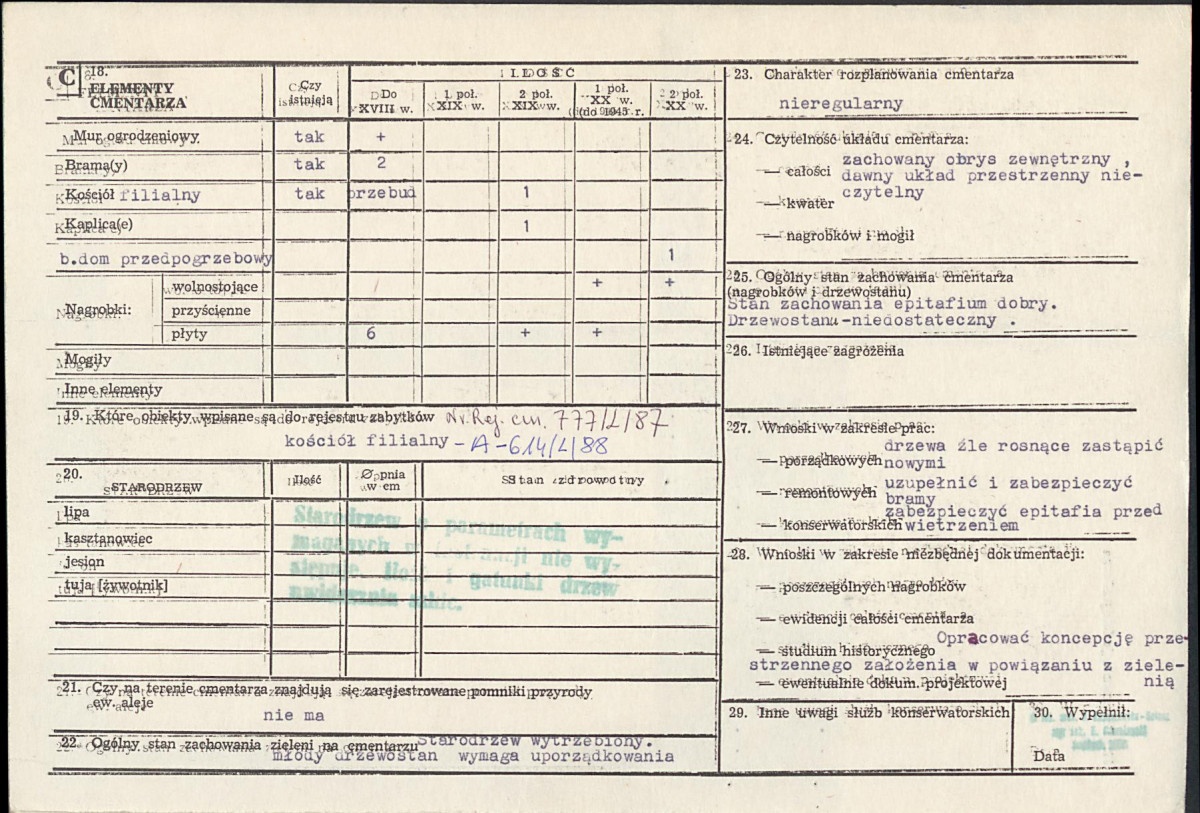 C 18.
ELEMENTY
CMENTARZA
Czy
istnieją
ILOŚĆ
Do
XVIII w.
1 poł.
XIX w.
2 poł.
XIX w.
1 poł.
XX w.
(do 1945 r.
2 poł.
XX w.
Mur ogrodzeniowy. tak +
Brama(y) tak 2
Kościół filialny tak przebud 1
Kaplica(e) 1
b.dom przedpogrzebowy 1
Nagrobki:
wolnostojące + +
przyścienne
płyty 6 + +
Mogiły
Inne elementy
19. Które obiekty wpisane są do rejestru zabytków Nr. Rej. cm. 777/L/87
kościół filialny - A-614/L/88
20.
STARODRZEW
Ilość
Øpnia
w cm
Stan zdrowotny
lipa
kasztanowiec
jesion
tuja [żywotnik]
Starodrzew o parametrach wy-
maganych w
nie wy-
i gatunki drzew
21. Czy na terenie cmentarza znajdują się zarejestrowane pomniki przyrody
ew. aleje
nie ma
22. Ogólny stan zachowania zieleni na cmentarzu Starodrzew wytrzebiony.
młody drzewostan wymaga uporządkowania
23. Charakter rozplanowania cmentarza
nieregularny
24. Czytelność układu cmentarza:
zachowany obrys zewnętrzny ,
— całości dawny układ przestrzenny nie-
czytelny
— kwater
— nagrobków i mogił
25. Ogólny stan zachowania cmentarza
(nagrobków i drzewostanu)
Stan zachowania epitafium dobry.
Drzewostanu-niedostateczny .
26. Istniejące zagrożenia
27. Wnioski w zakresie prac:
drzewa źle rosnące zastąpić
— porządkowych nowymi
— remontowych uzupełnić i zabezpieczyć
bramy
zabezpieczyć epitafia przed
— konserwatorskich wietrzeniem
28. Wnioski w zakresie niezbędnej dokumentacji:
— poszczególnych nagrobków
— ewidencji całości cmentarza
— studium historycznego Opracować koncepcję prze-
strzennego założenia w powiązaniu z ziele-
— ewentualnie dokum. projektowej nią
29. Inne uwagi służb konserwatorskich
30. Wypełnił:
Data